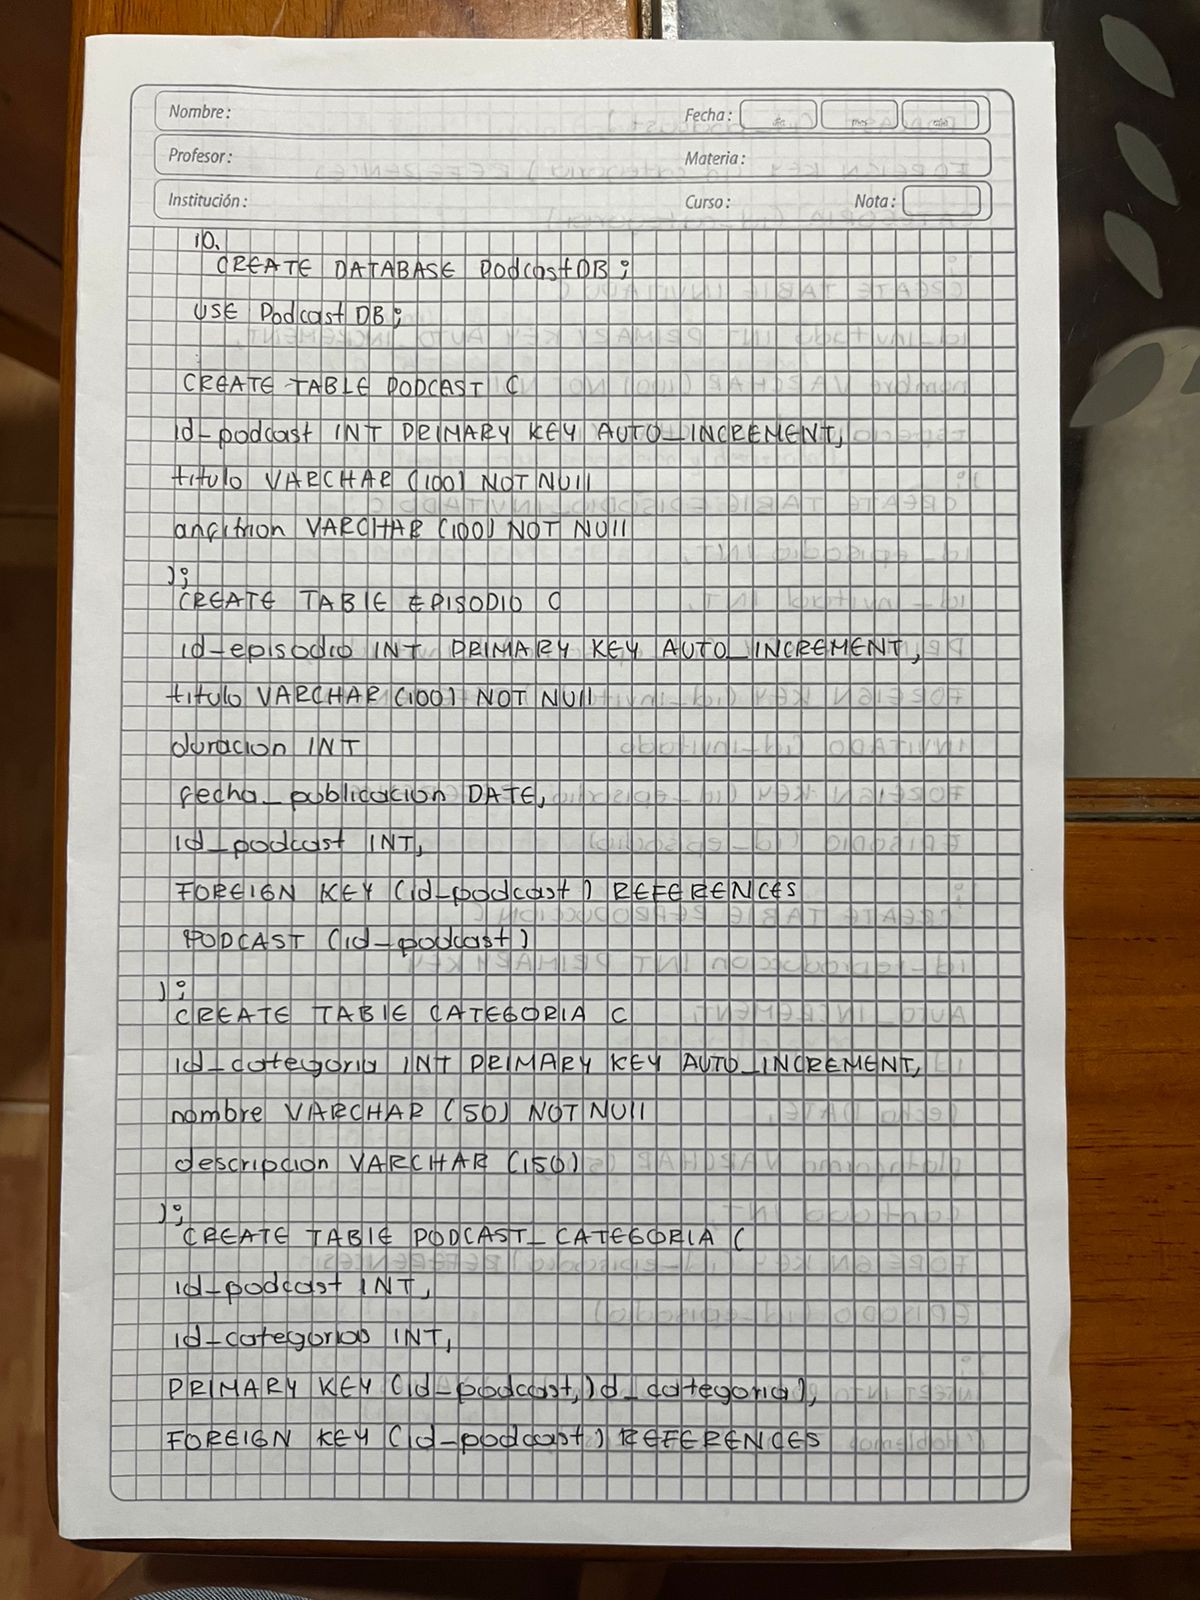 Nombre:
Fecha:
día
mes
año
Profesor:
Materia:
Institución:
Curso:
Nota:
10.
CREATE DATABASE PodcastDB;
USE PodcastDB;
CREATE TABLE PODCAST (
id_podcast INT PRIMARY KEY AUTO_INCREMENT,
titulo VARCHAR (100) NOT NUll
anfitrion VARCHAR (100) NOT NUll
);
CREATE TABlE EPISODIO (
id_episodio INT PRIMARY KEY AUTO_INCREMENT,
titulo VARCHAR (100) NOT NUll
duracion INT
fecha_publicacion DATE,
id_podcast INT,
FOREIGN KEY (id_podcast) REFERENCES
PODCAST (id_podcast)
);
CREATE TABlE CATEGORIA (
id_categoria INT PRIMARY KEY AUTO_INCREMENT,
nombre VARCHAR (50) NOT NUll
descripcion VARCHAR (150)
);
CREATE TABlE PODCAST_CATEGORIA (
id_podcast INT,
id_categorias INT,
PRIMARY KEY (id_podcast, id_categoria),
FOREIGN KEY (id_podcast) REFERENCES